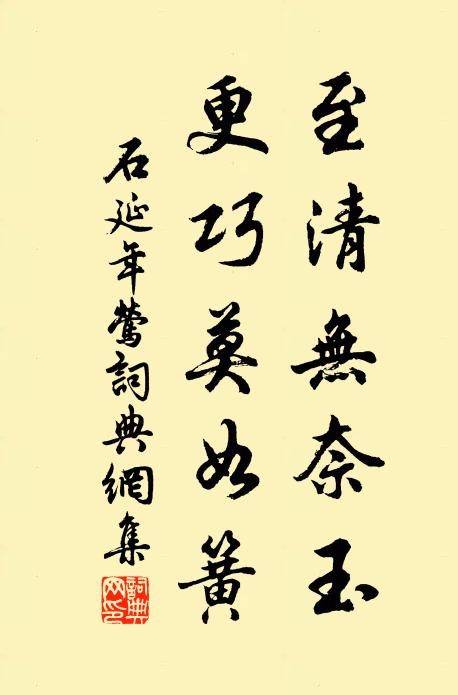 至清無奈玉
更巧莫如簧
石延年鶯詞典網集
詞典網印